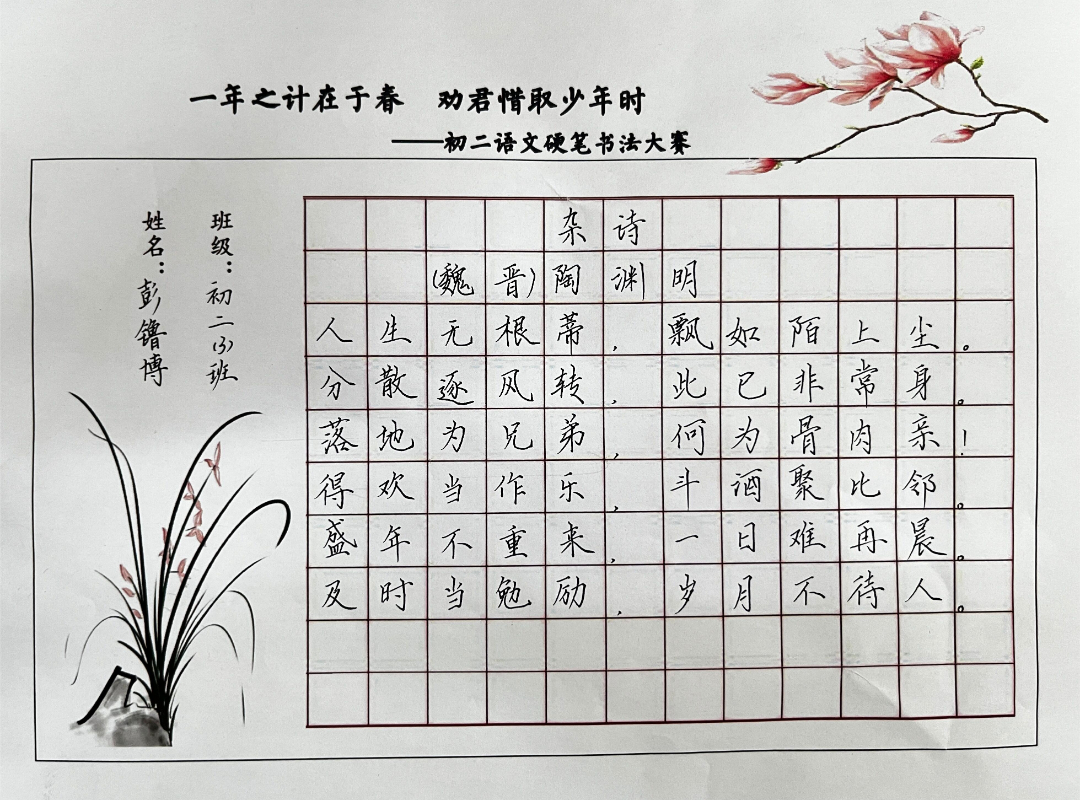 一年之计在于春 劝君惜取少年时
——初二语文硬笔书法大赛
班级：初二(3)班
姓名：彭镥博
杂诗
(魏晋)陶渊明
人生无根蒂，飘如陌上尘。
分散逐风转，此已非常身。
落地为兄弟，何为骨肉亲！
得欢当作乐，斗酒聚比邻。
盛年不重来，一日难再晨。
及时当勉励，岁月不待人。